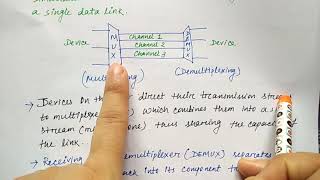 a single data link.
Device
MUX
Channel 1
Channel 2
Channel 3
Device
(Mul xing)
(Demultiplexing)
→ Devices on th direct their transmission stre
to multiplex which combines them into a s
stream (m one) thus sharing the capacity of
the link..
→ Receiving emultiplexer (DEMUX) separates
back into its component tr